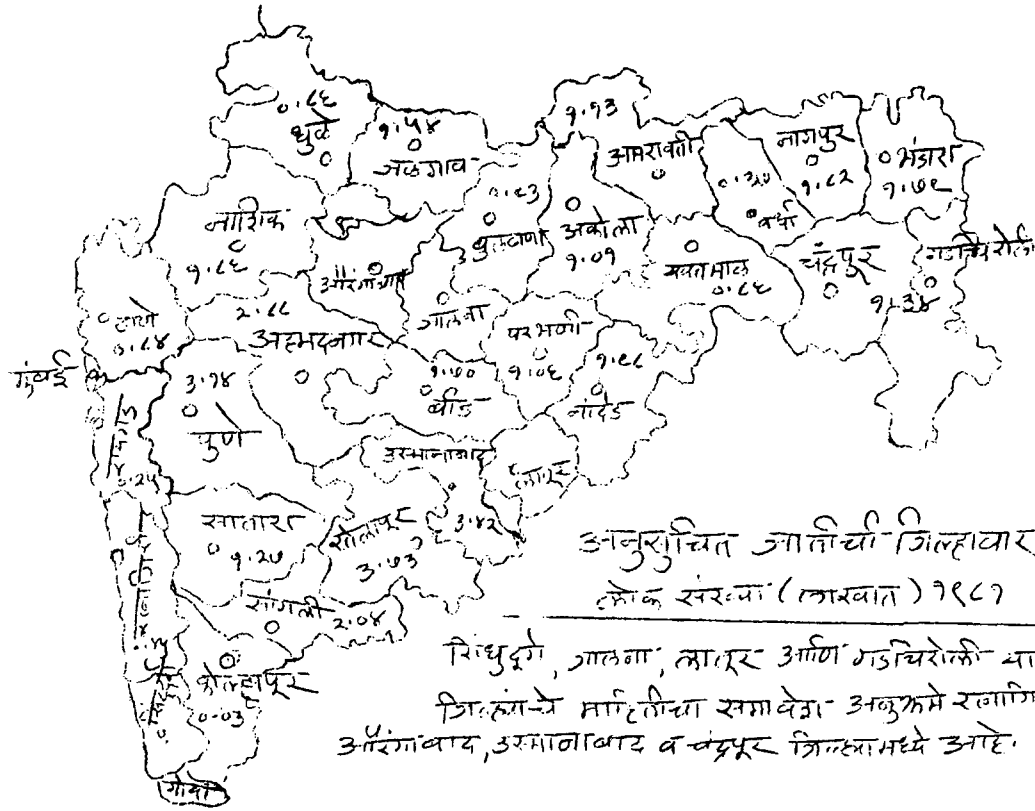 ०.८६
धुळे
१.५४
जळगाव
१.१३
अमरावती
नागपुर
१.८२
भंडारा
१.७६
वर्धा
नाशिक
१.८६
औरंगाबाद
०.८३
बुलढाणा
अकोला
१.०१
यवतमाळ
०.८६
चंद्रपूर
१.३४
गडचिरोली
ठाणे
०.८४
२.८८
अहमदनगर
जालना
परभणी
१.०६
१.८८
नांदेड
मुंबई
३.१४
पुणे
१.७०
बीड
उस्मानाबाद
लातूर
रायगड
०.२५
सातारा
१.२७
सोलापूर
३.७३
३.४२
रत्नागिरी
सांगली २.०४
कोल्हापूर
०.०३
गोवा
अनुसुचित जातीची जिल्हावार
लोक संख्या (लाखात) १९८१
सिंधुदूर्ग, जालना, लातूर आणि गडचिरोली या
जिल्ह्यांचे माहितीचा समावेश अनुक्रमे रत्नागि
औरंगाबाद, उस्मानाबाद व चंद्रपूर जिल्ह्यामध्ये आहे.